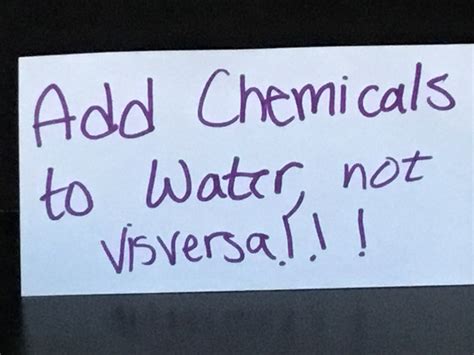 Add Chemicals
to Water, not
visversa!!!